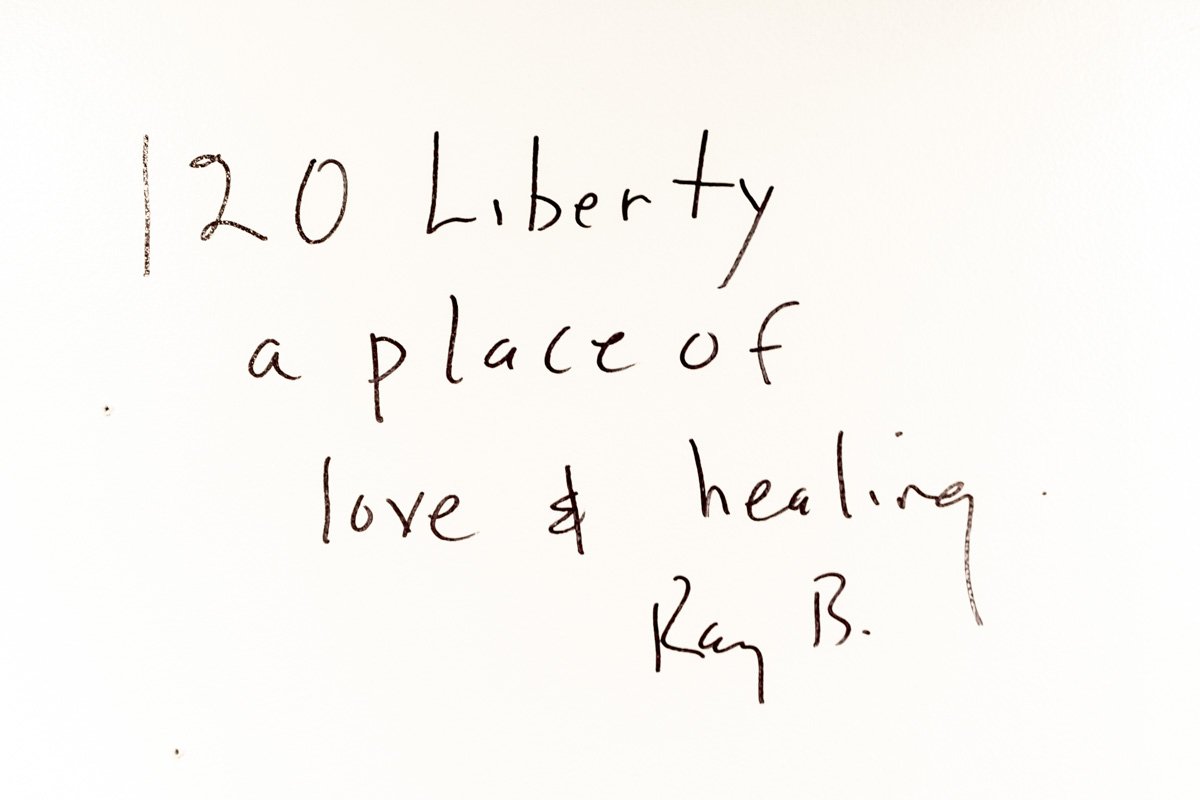 120 Liberty
a place of
love & healing
Ray B.